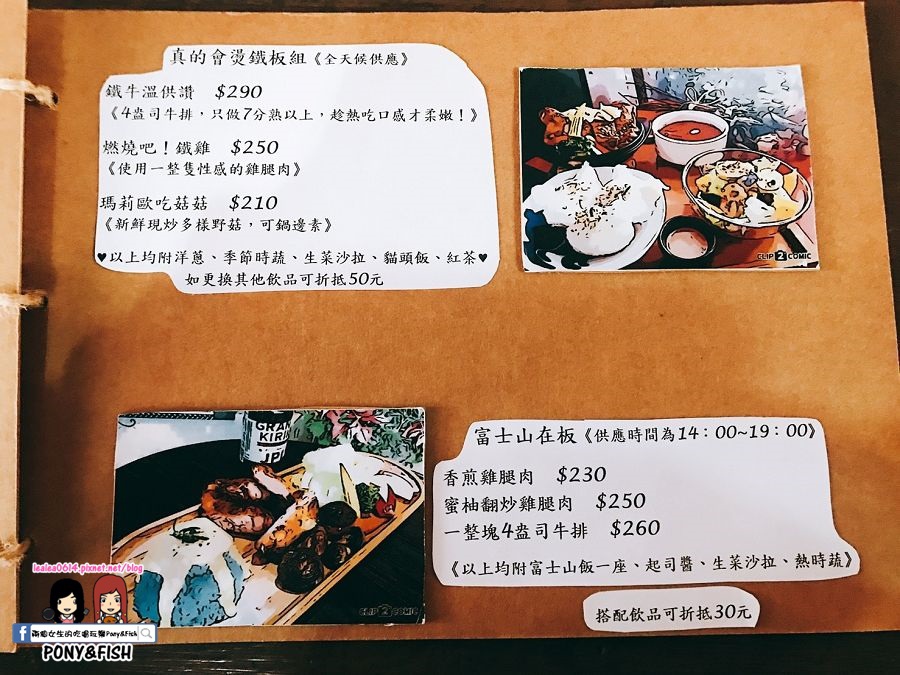 真的會燙鐵板組《全天候供應》
鐵牛溫供讚 $290
《4盎司牛排，只做7分熟以上，趁熱吃口感才柔嫩！》
燃燒吧！鐵雞 $250
《使用一整隻性感的雞腿肉》
瑪莉歐吃菇菇 $210
《新鮮現炒多樣野菇，可鍋邊素》
♥以上均附洋蔥、季節時蔬、生菜沙拉、貓頭飯、紅茶♥
如更換其他飲品可折抵50元
CLIP 2 COMIC
GRAN
KIRIN
JPL
CLIP 2 COMIC
富士山在板《供應時間為14：00~19：00》
香煎雞腿肉 $230
蜜柚翻炒雞腿肉 $250
一整塊4盎司牛排 $260
《以上均附富士山飯一座、起司醬、生菜沙拉、熱時蔬》
搭配飲品可折抵30元
lealea0614.pixnet.net/blog
兩個女生的吃喝玩樂Pony&Fish
PONY&FISH